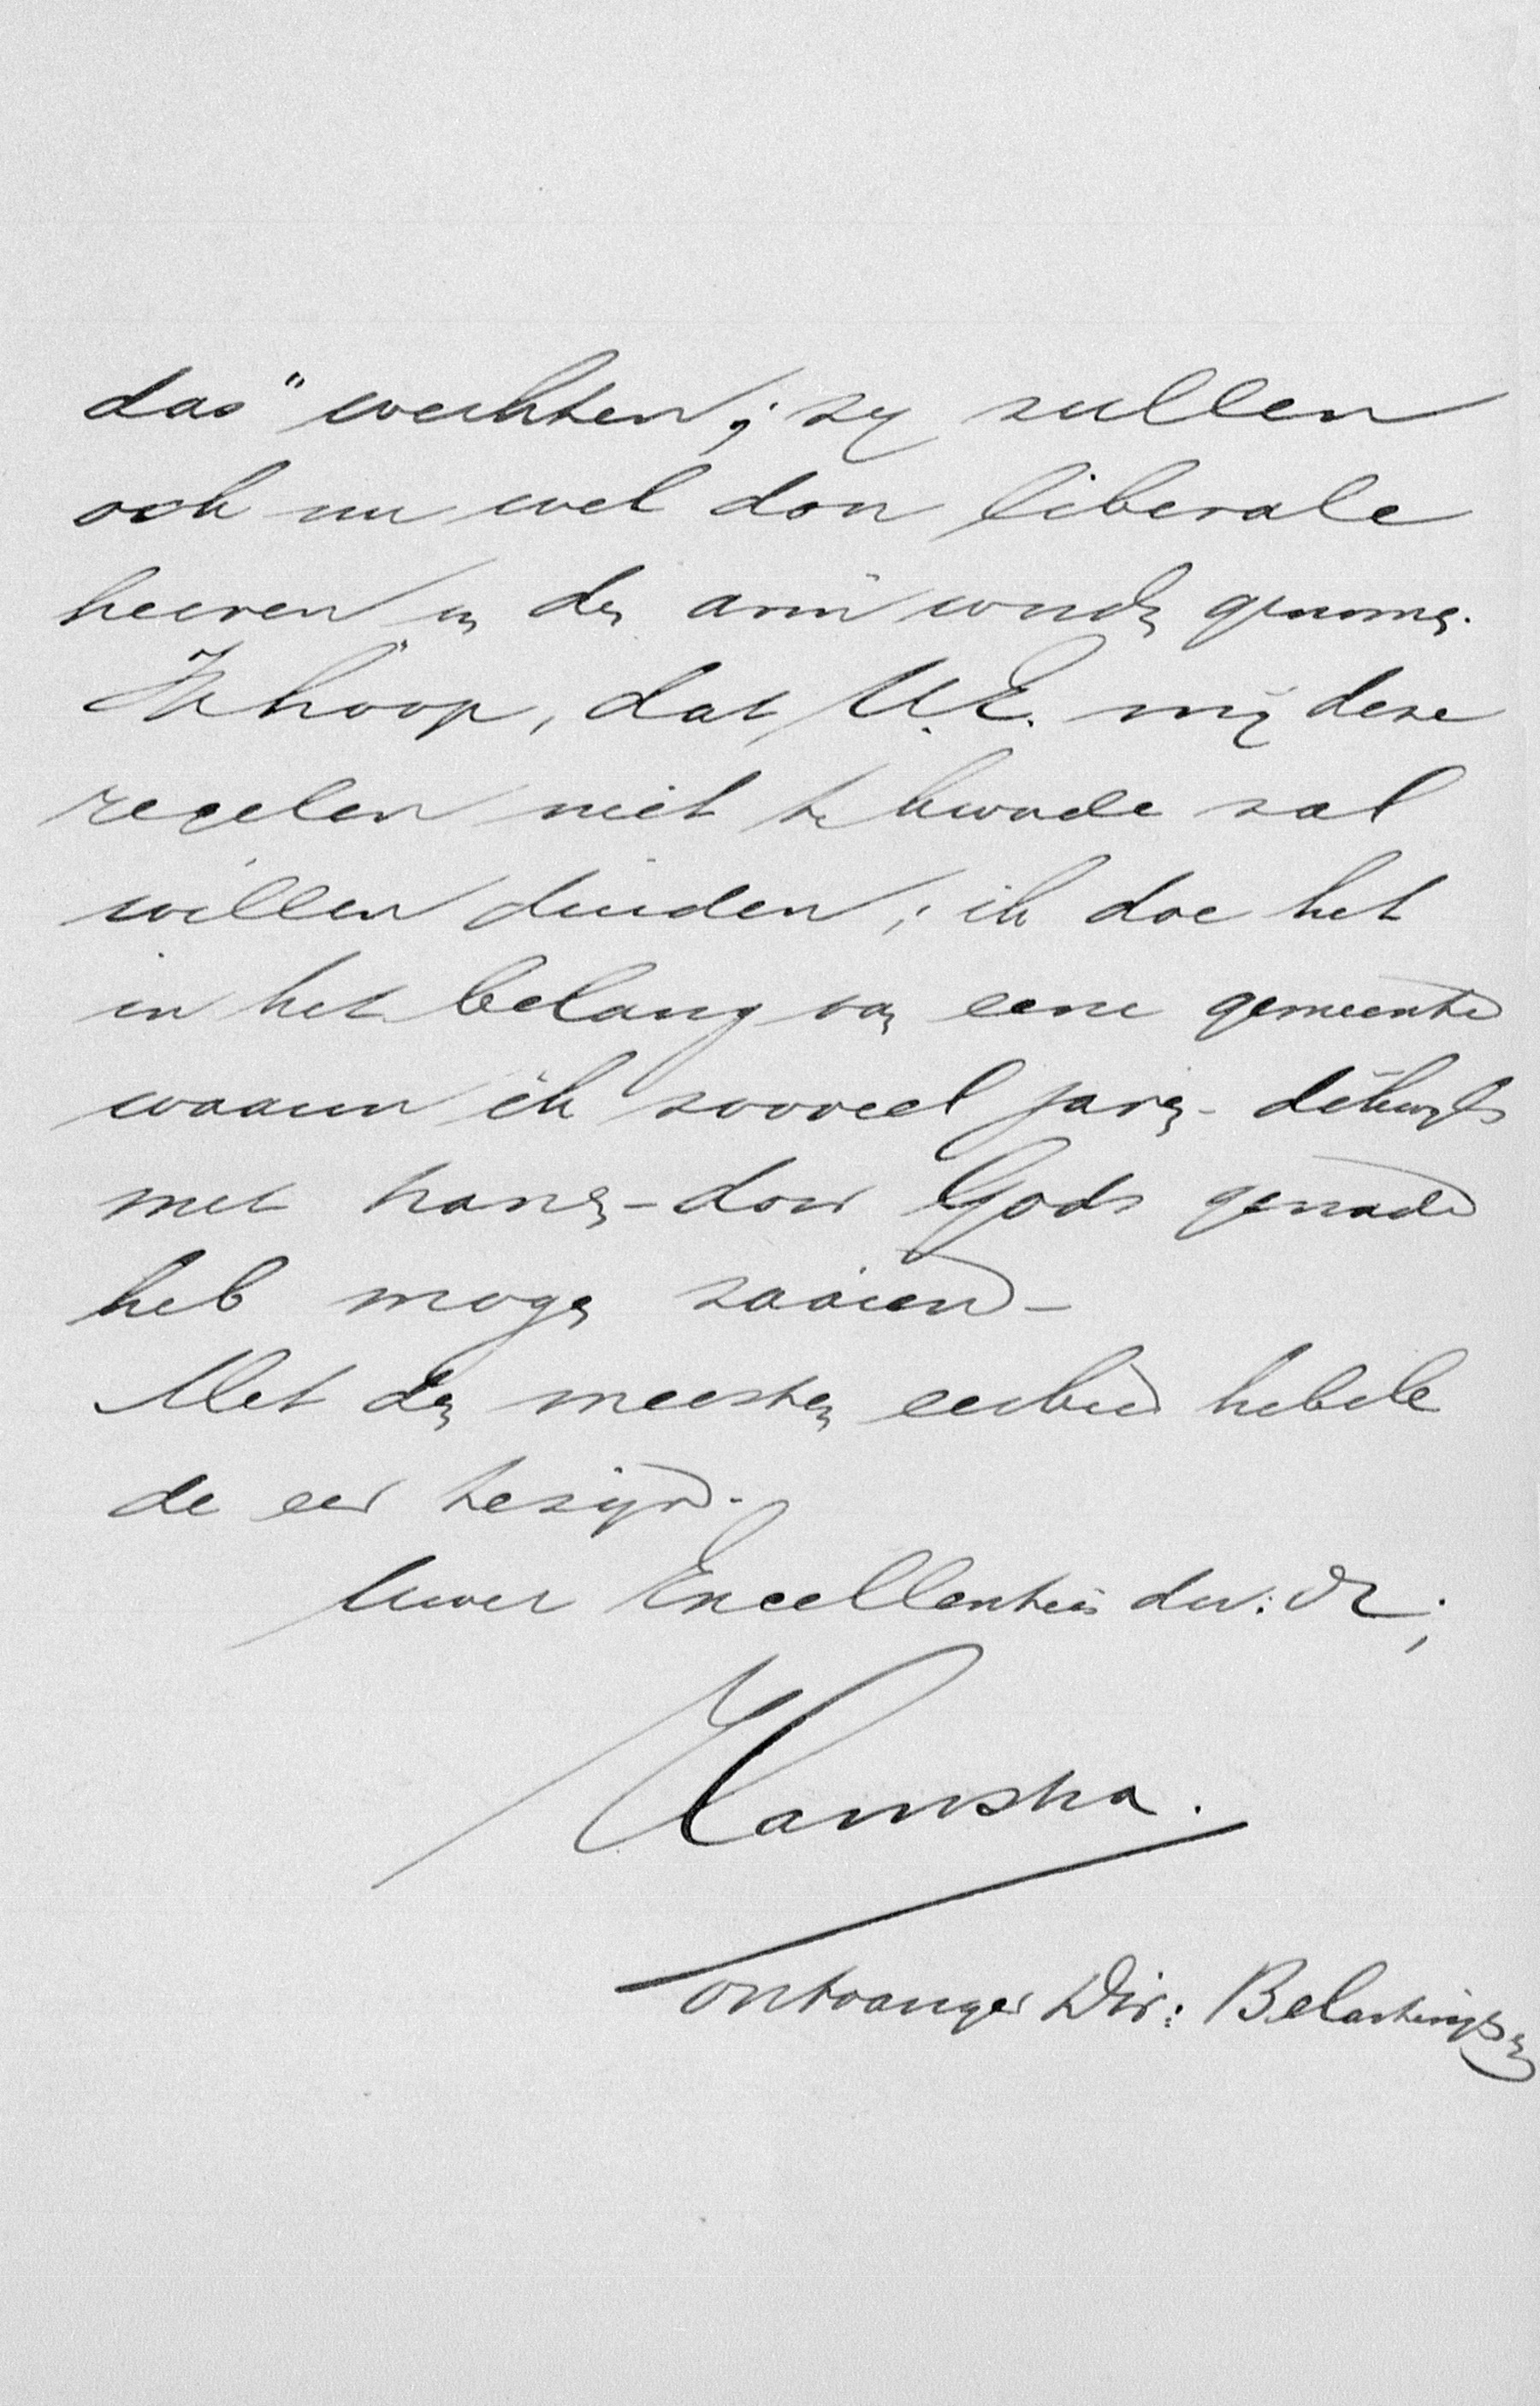 das" wachten; zij zullen
ook nu wel door liberale
heeren in den arm worden genomen.
Ik hoop, dat U.E. mij deze
regelen niet te kwade zal
willen duiden; ik doe het
in het belang van eene gemeente
waarin ik zooveel jaren - dikwijls
met tranen - door Gods genade
heb mogen zaaien -
Met den meesten eerbied heb ik
de eer te zijn.
Uwer Excellentie's dw: dr;
ontvanger Dir: Belastingen